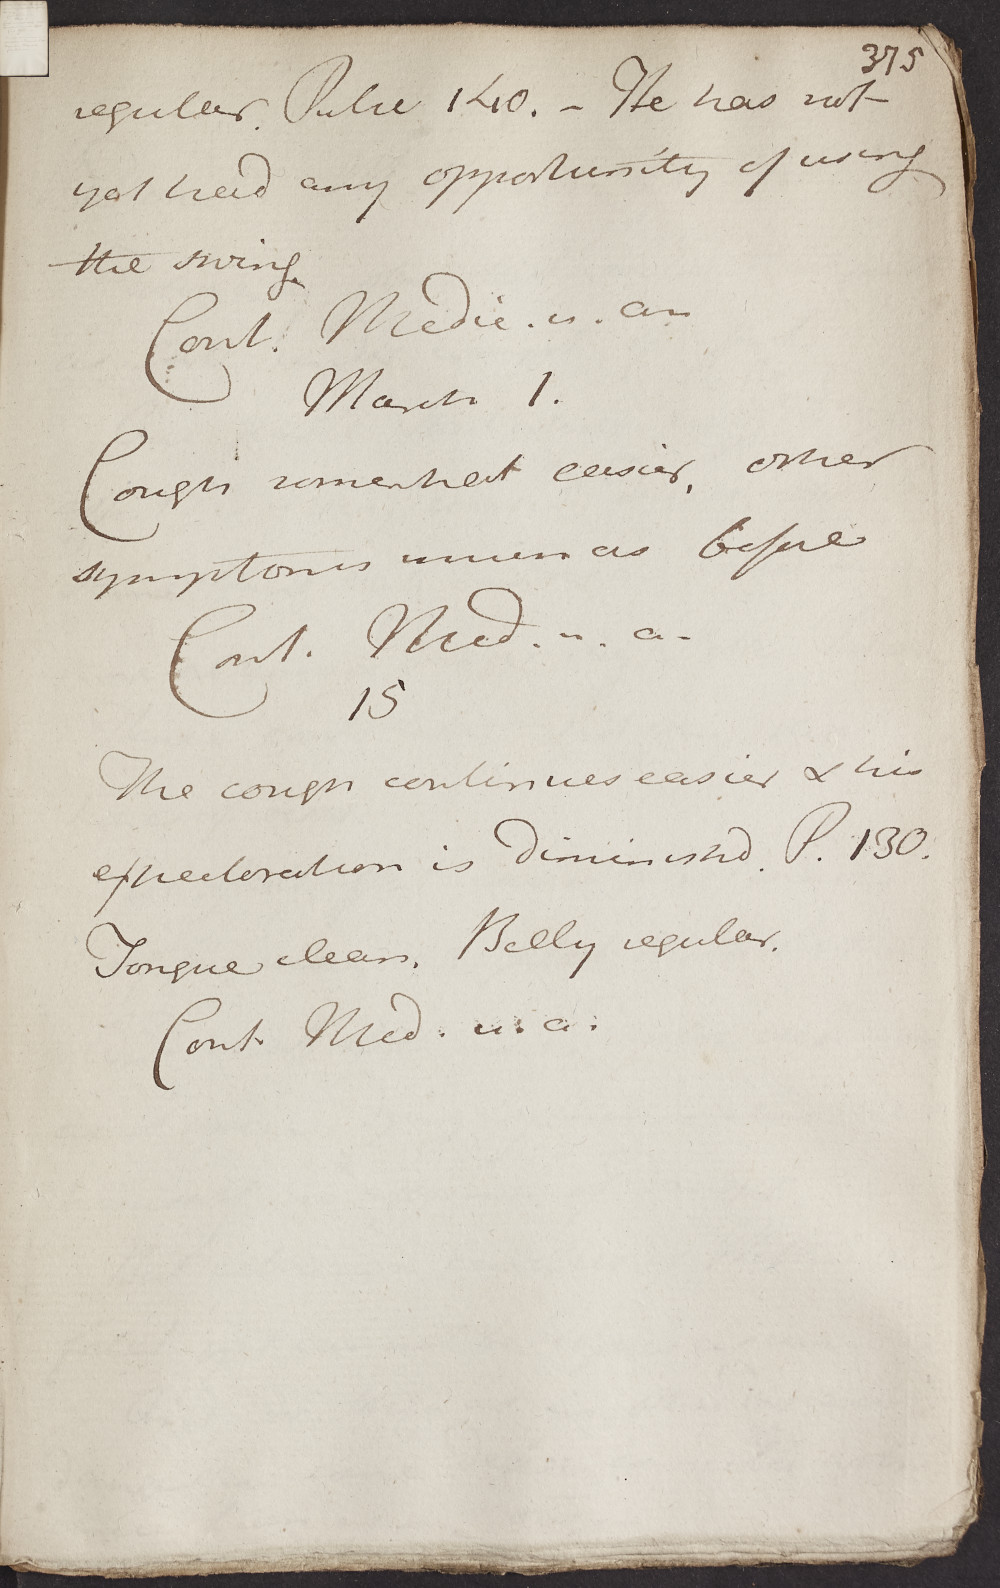 375
regular. Pulse 140. - He has not
yet had any opportunity of using
the swing.
Cont. Medic. u. an
March 1.
Cough somewhat easier, other
symptoms much as before
Cont. Med. u. a.
15
The cough continues easier & his
expectoration is diminishd. P. 130.
Tongue clean. Belly regular.
Cont. Med. u. a.